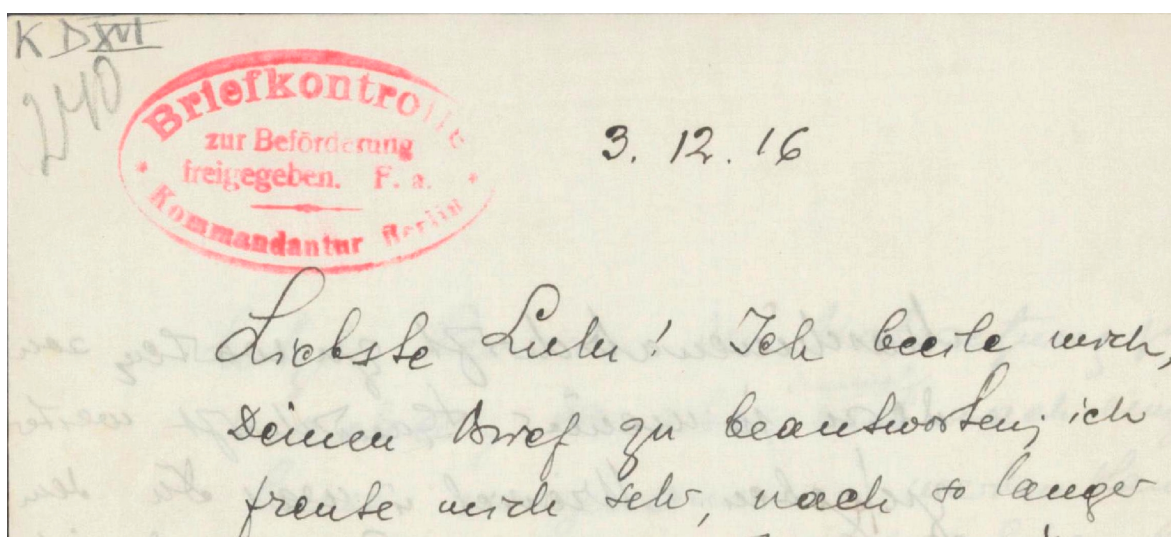 K D XVI
240
Briefkontrolle
zur Beförderung
freigegeben. F. a.
Kommandantur Berlin
3. 12. 16
Liebste Lulu! Ich beeile mich,
Deinen Brief zu beantworten; ich
freute mich sehr, nach so langer